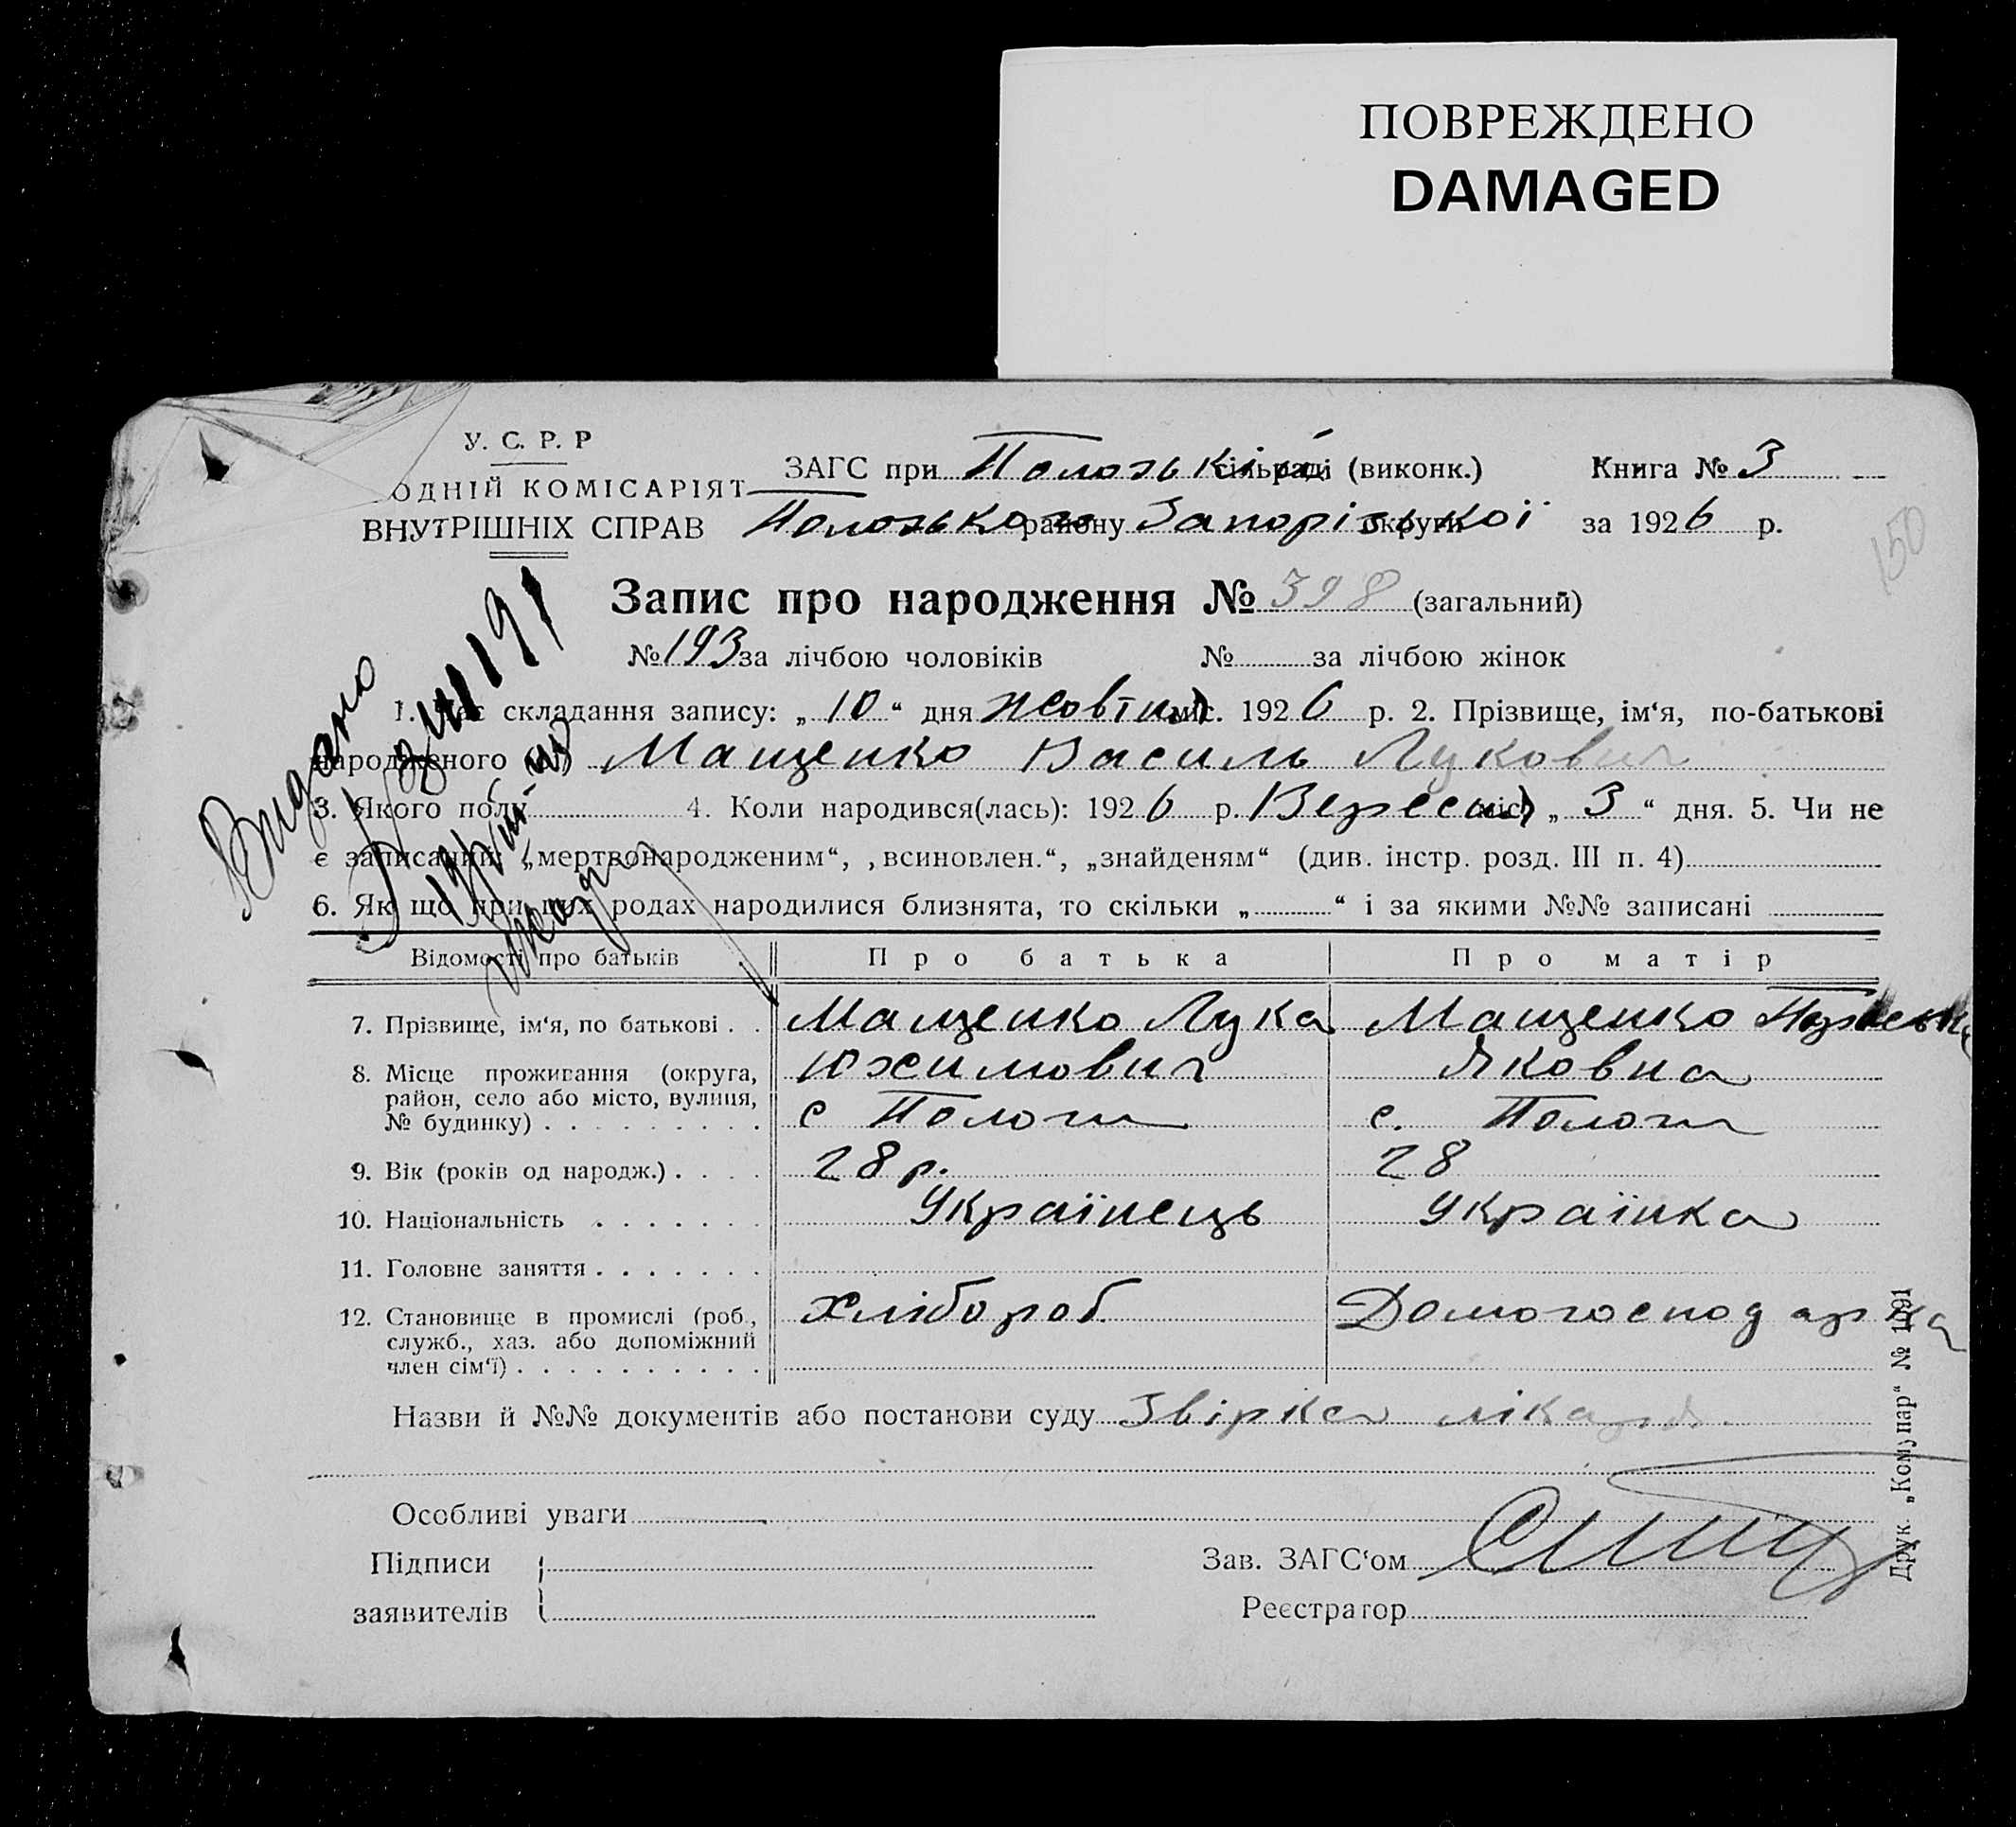 ПОВРЕЖДЕНО
DAMAGED
У. С. Р. Р
ОДНІЙ КОМІСАРІЯТ
ВНУТРІШНІХ СПРАВ
ЗАГС при Полозькій сільраді (виконк.) Книга № 3
Полозького району Запорізької округи за 1926 р.
150
Запис про народження № 398 (загальний)
№ 193 за лічбою чоловіків № за лічбою жінок
1. Час складання запису: „ 10 “ дня жовтня міс. 1926 р. 2. Прізвище, ім‘я, по-батькові
народженого Мащенко Василь Лукович
3. Якого полу 4. Коли народився(лась): 1926 р. Вересня міс. „ 3 “ дня. 5. Чи не
є записаний: „мертвонародженим“, „всиновлен.“, „знайденям“ (див. інстр. розд. III п. 4)
6. Як що при цих родах народилися близнята, то скільки „ “ і за якими №№ записані
Видано
Відомості про батьків Про батька Про матір
7. Прізвище, ім‘я, по батькові . . Мащенко Лука Мащенко
Юхимович Яковна
8. Місце проживання (округа,
район, село або місто, вулиця,
№ будинку) . . . . . . . . . с Пологи с. Пологи
9. Вік (років од народж.) . . . . 28 р. 28
10. Національність . . . . . . . Українець Українка
11. Головне заняття . . . . . . .
12. Становище в промислі (роб., Хлібороб Домогосподарка
служб., хаз. або допоміжний
член сім‘ї) . . . . . . . . . .
Назви й №№ документів або постанови суду Звірка лікаря.
Особливі уваги
Підписи
заявителів
Зав. ЗАГС‘ом
Реєстратор
Друк. „Комунар“ № 1091